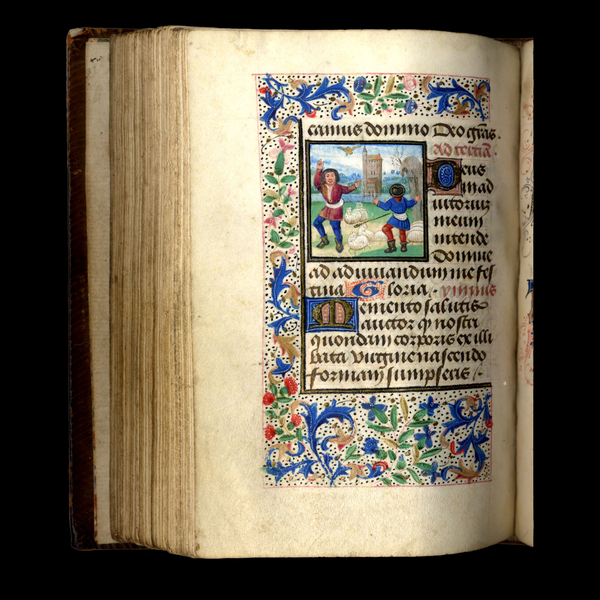 camus domino Deo grãs.
Ad tertiã.
Deus
in ad
iutoriũ
meum
intende
Domine
ad adiuuandum me fes
tina Gloria. ymnus
Memento salutis
auctor q nostri
quondam corporis ex illi
bata virgine nascendo
formam sumpseris